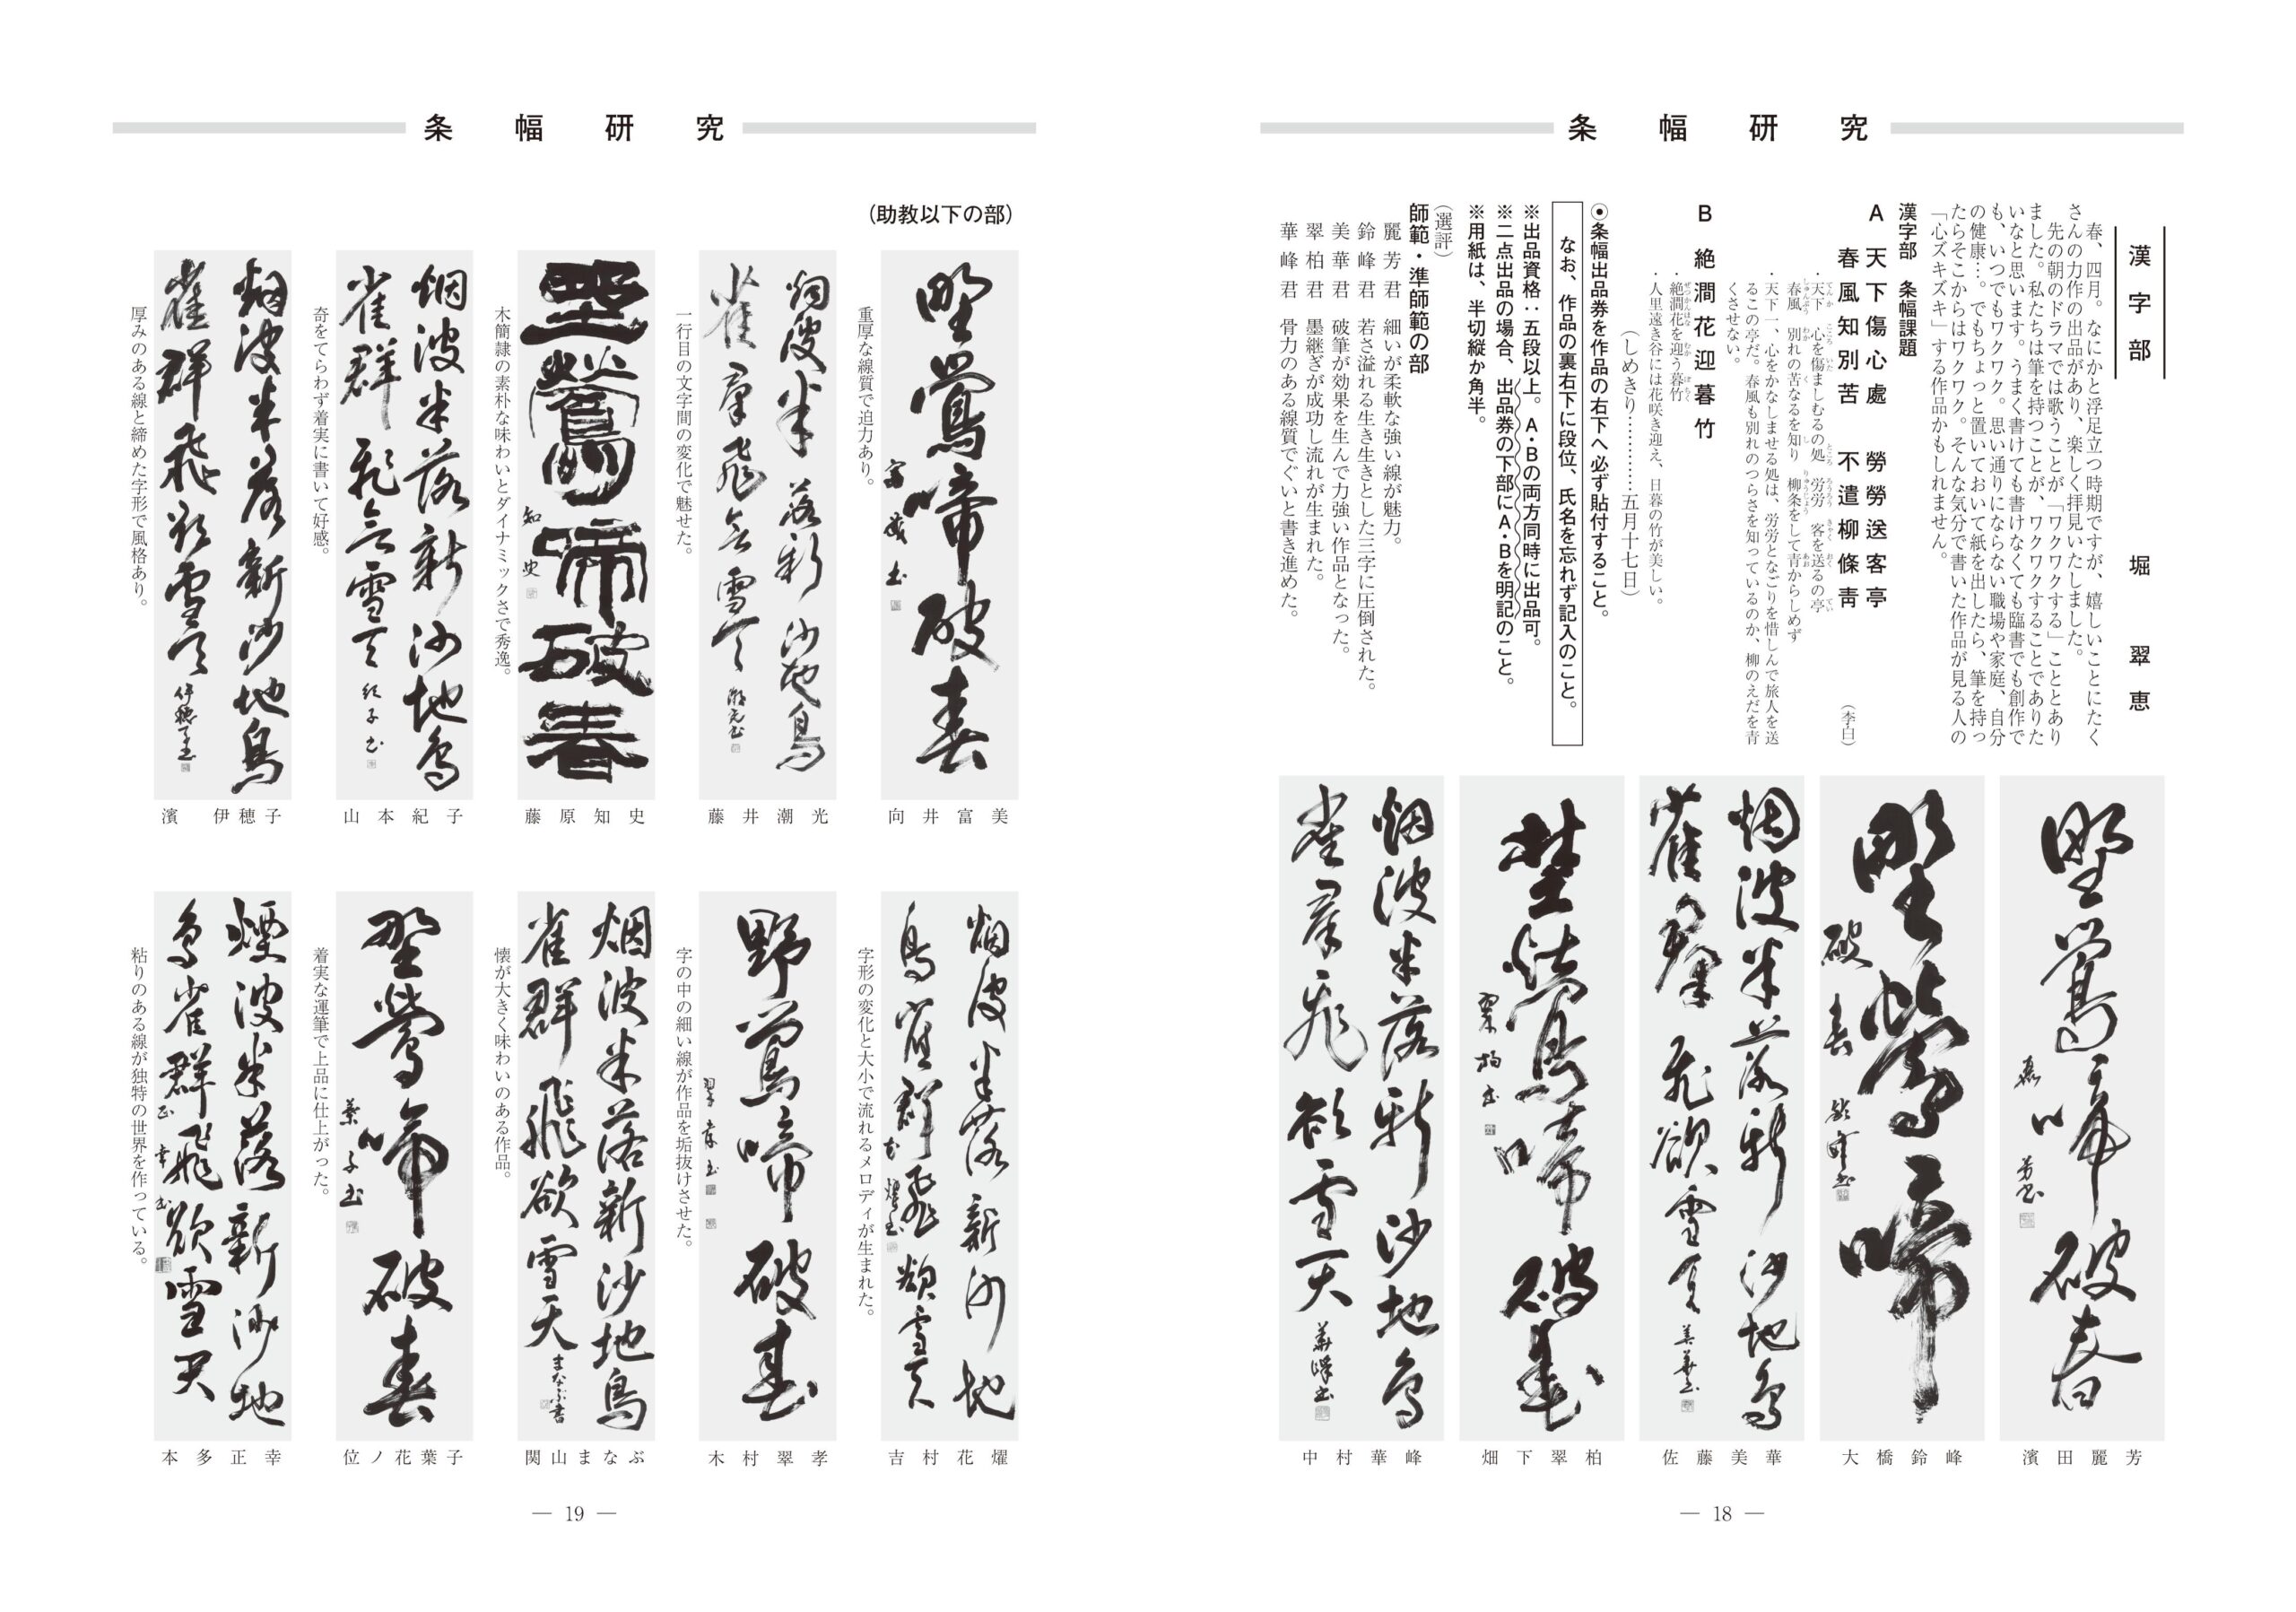 条幅研究
漢字部
堀 翠恵
春、四月。なにかと浮足立つ時期ですが、嬉しいことにたく
さんの力作の出品があり、楽しく拝見いたしました。
先の朝のドラマでは歌うことが「ワクワクする」こととあり
ました。私たちは筆を持つことが、ワクワクすることでありた
いなと思います。うまく書けても書けなくても臨書でも創作で
も、いつでもワクワク。思い通りにならない職場や家庭、自分
の健康…。でもちょっと置いておいて紙を出したら、筆を持っ
たらそこからはワクワク。そんな気分で書いた作品が見る人の
「心ズキズキ」する作品かもしれません。
漢字部 条幅課題
A 天下傷心處 勞勞送客亭
春風知別苦 不遣柳條靑
(李白)
・天下 心を傷ましむるの処 労労 客を送るの亭
春風 別れの苦なるを知り 柳条をして青からしめず
・天下一、心をかなしませる処は、労労となごりを惜しんで旅人を送
るこの亭だ。春風も別れのつらさを知っているのか、柳のえだを青
くさせない。
B 絶澗花迎暮竹
・絶澗花を迎う暮竹
・人里遠き谷には花咲き迎え、日暮の竹が美しい。
(しめきり…………五月十七日)
◉条幅出品券を作品の右下へ必ず貼付すること。
なお、作品の裏右下に段位、氏名を忘れず記入のこと。
※出品資格：五段以上。A・Bの両方同時に出品可。
※二点出品の場合、出品券の下部にA・Bを明記のこと。
※用紙は、半切縦か角半。
(選評)
師範・準師範の部
麗芳君 細いが柔軟な強い線が魅力。
鈴峰君 若さ溢れる生き生きとした三字に圧倒された。
美華君 破筆が効果を生んで力強い作品となった。
翠柏君 墨継ぎが成功し流れが生まれた。
華峰君 骨力のある線質でぐいと書き進めた。
野鶯啼破春
濱田麗芳
野鶯啼
破春
大橋鈴峰
烟波半落新沙地鳥
雀群飛欲雪天
佐藤美華
野鶯啼破春
畑下翠柏
烟波半落新沙地鳥
雀群飛欲雪天
中村華峰
— 18 —
条幅研究
(助教以下の部)
野鶯啼破春
重厚な線質で迫力あり。
向井富美
烟波半落新沙地鳥
雀群飛欲雪天
一行目の文字間の変化で魅せた。
藤井潮光
野鶯啼破春
知史
木簡隷の素朴な味わいとダイナミックさで秀逸。
藤原知史
烟波半落新沙地鳥
雀群飛欲雪天
奇をてらわず着実に書いて好感。
山本紀子
烟波半落新沙地鳥
雀群飛欲雪天
厚みのある線と締めた字形で風格あり。
濱 伊穂子
烟波半落新沙地
鳥雀群飛欲雪天
字形の変化と大小で流れるメロディが生まれた。
吉村花燿
野鶯啼破春
字の中の細い線が作品を垢抜けさせた。
木村翠孝
烟波半落新沙地鳥
雀群飛欲雪天
まなぶ書
懐が大きく味わいのある作品。
関山まなぶ
野鶯啼破春
葉子書
着実な運筆で上品に仕上がった。
位ノ花葉子
煙波半落新沙地
鳥雀群飛欲雪天
正幸書
粘りのある線が独特の世界を作っている。
本多正幸
— 19 —